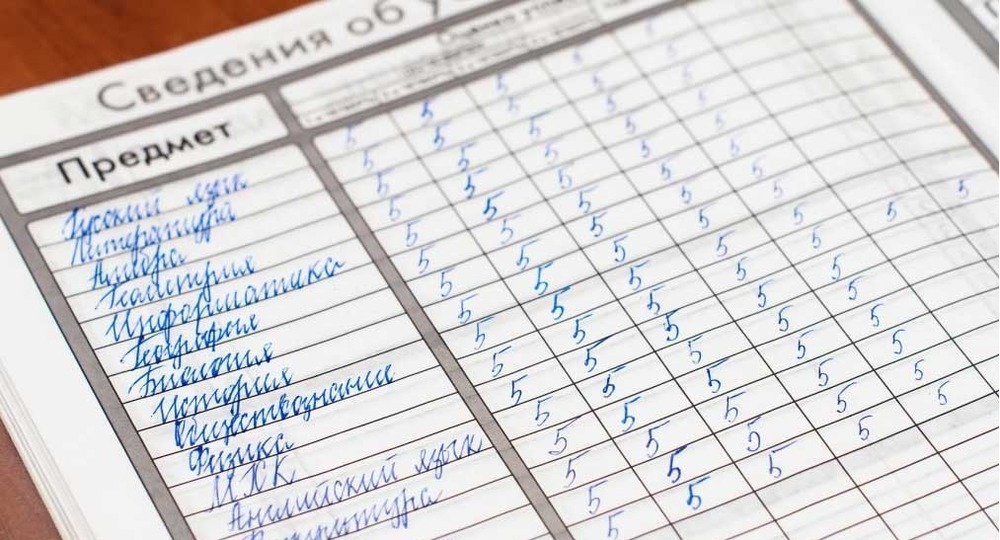 Сведения об
Предмет
Русский язык 5 5 5 5 5
Литература 5 5 5 5 5
Алгебра 5 5 5 5 5
Геометрия 5 5 5 5 5
Информатика 5 5 5 5 5
География 5 5 5 5 5
Биология 5 5 5 5 5
История 5 5 5 5 5
Обществознание 5 5 5 5 5
Физика 5 5 5 5 5 5 5
МХК 5 5 5 5 5
Английский язык 5 5 5 5 5
Физкультура 5 5 5 5 5
5 5 5 5 5
5 5 5 5 5
5 5 5 5